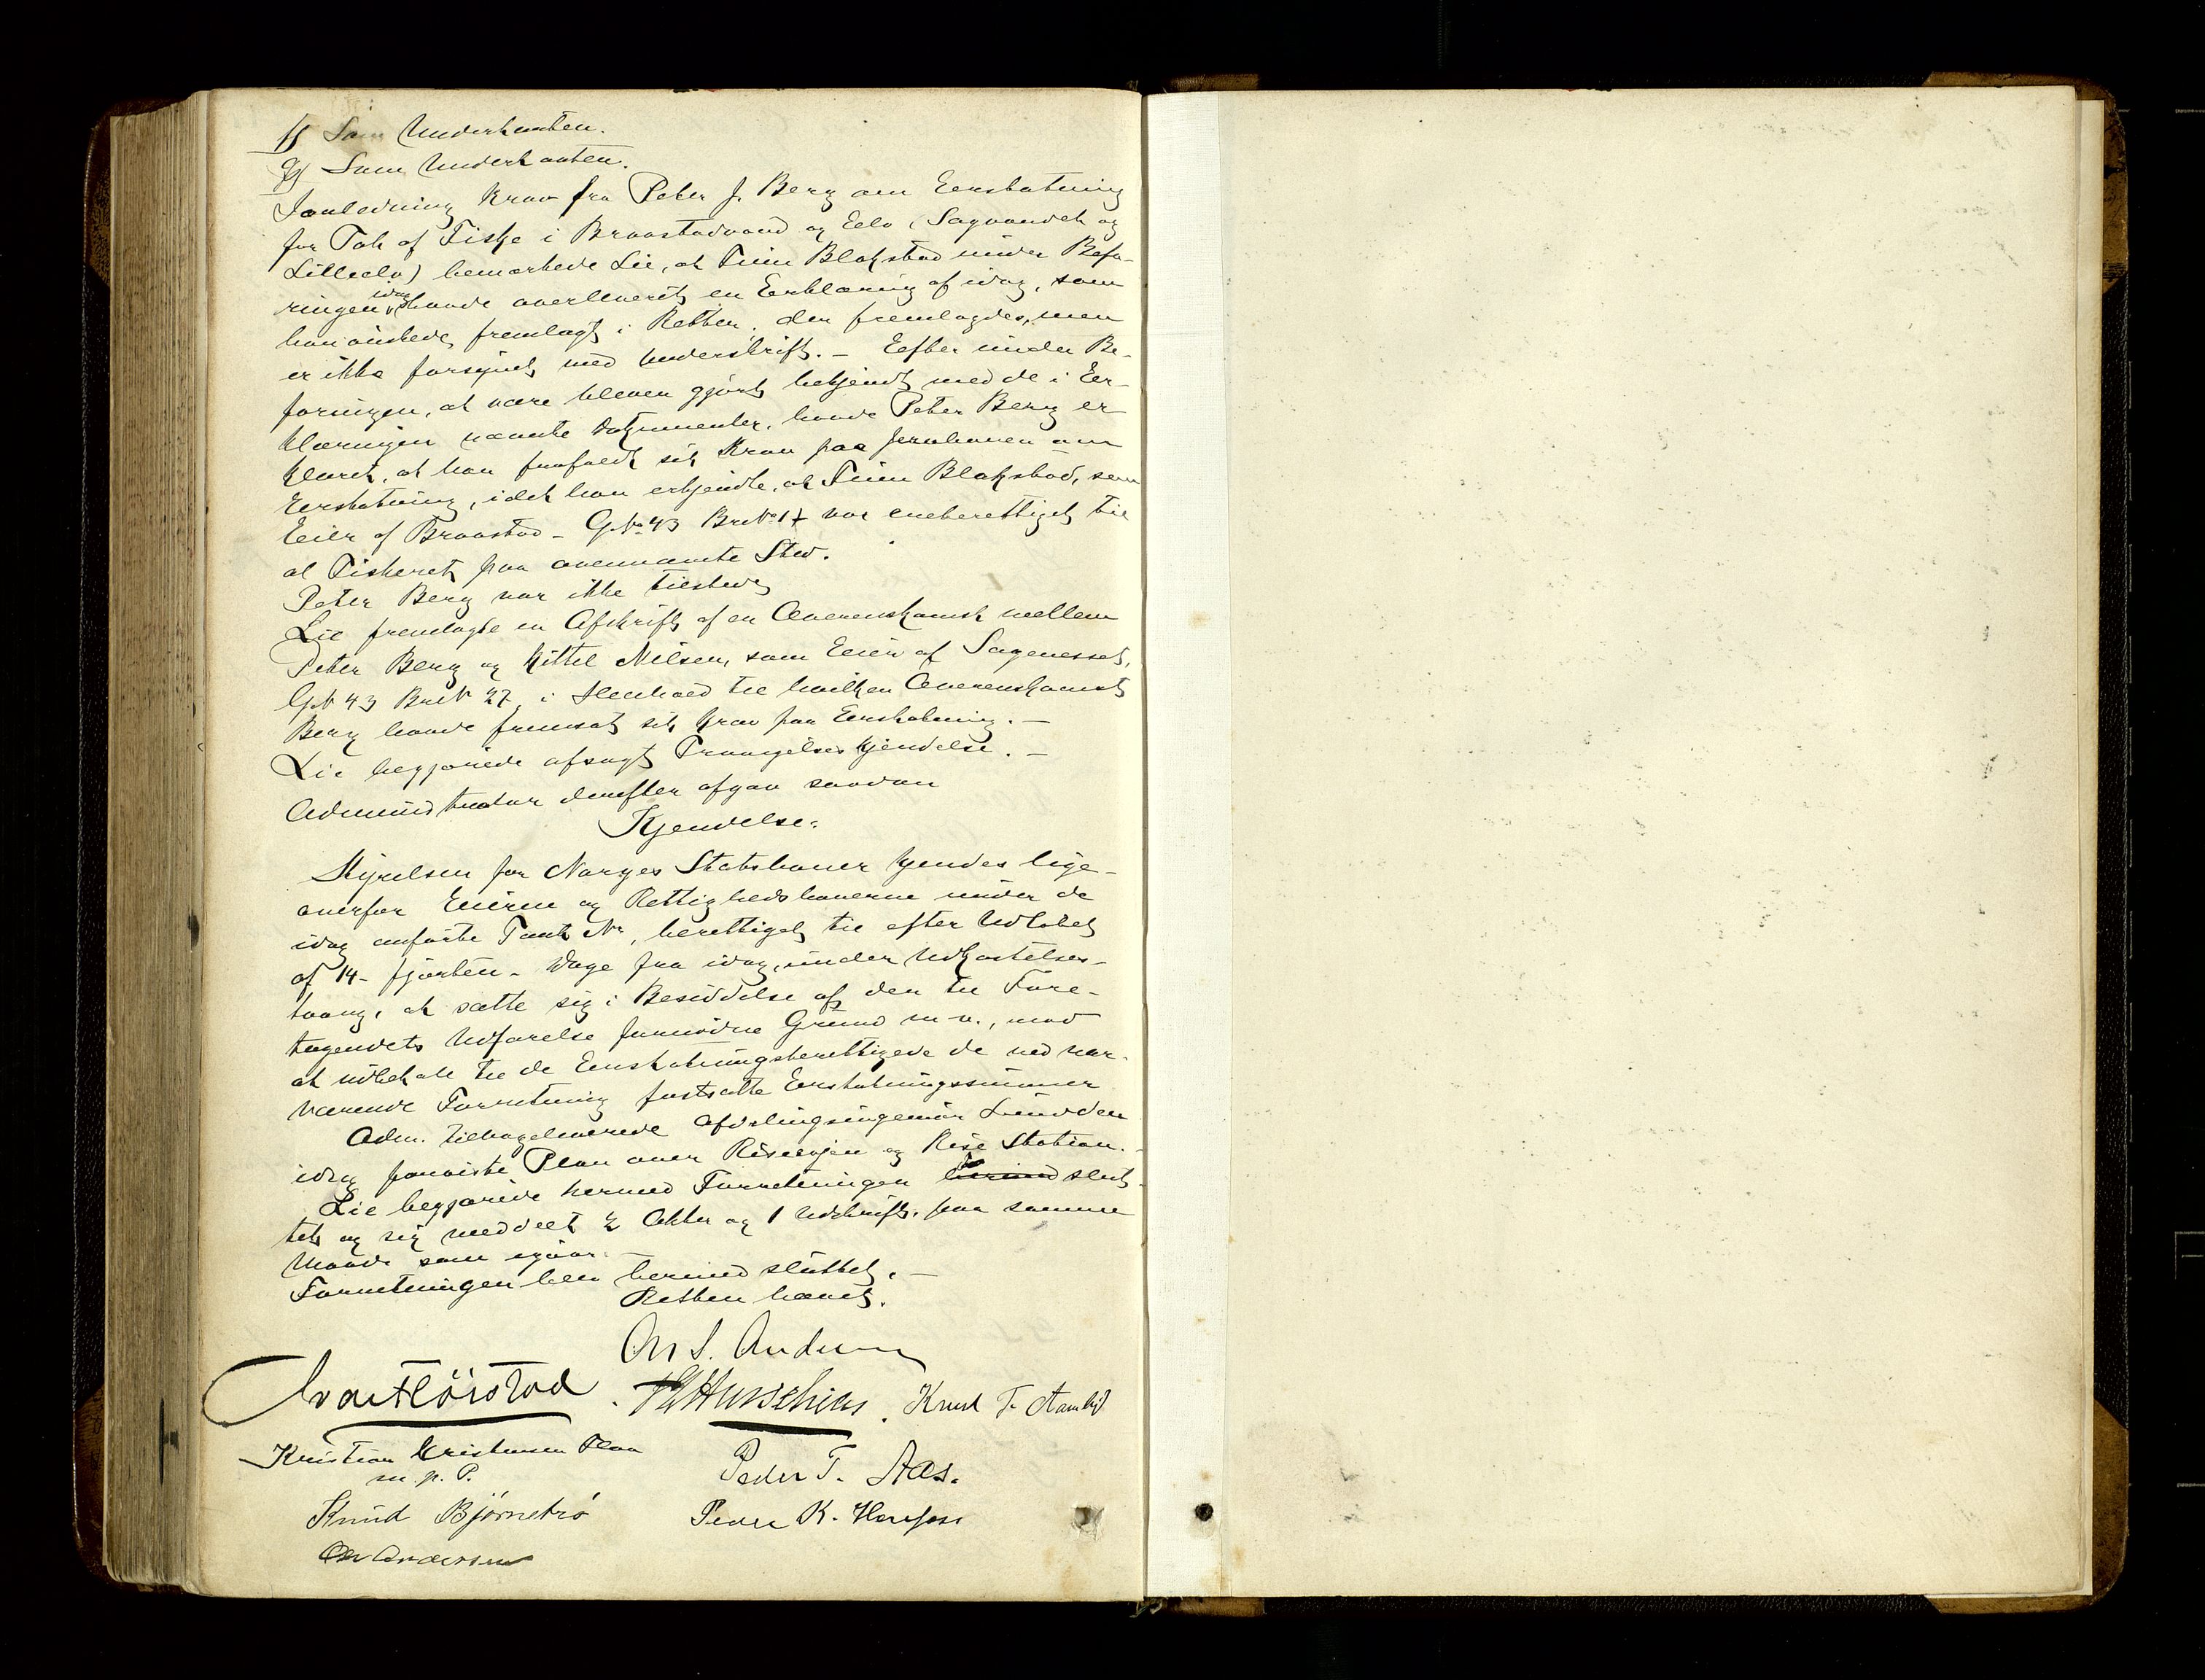 f) Som Underkanten.
g) Som Underkanten.
I anledning Krav fra Peter J. Berg om Erstatning
for Tab af Fiske i Braastadvand og Eelv (Sagvandet og
Lilleelv) bemærkede Lie, at Finn Blakstad under Befa-
ringen idag havde overleveret en Erklæring af idag, som
han ønskede fremlagt i Retten. Den fremlagdes, men
er ikke forsynet med Underskrift. — Efter under Be-
faringen, at være bleven gjort bekjendt med de i Er-
klæringen nævnte Dokumenter, havde Peter Berg er
klæret, at han frafaldt sit Krav paa Jernbanen om
Erstatning, idet han erkjendte, at Finn Blakstad, som
Eier af Braastad - G.No 43 Br.No 17 var eneberettiget til
al Fiskeret paa ovennævnte Sted.
Peter Berg var ikke tilstede
Lie fremlagde en Afskrift af en Overenskomst mellem
Peter Berg og Kittel Nilsen, som Eier af Sagenesset,
G.N 43 Br.N 27, i Henhold til hvilken Overenskomst
Berg havde fremsat sit Krav paa Erstatning. —
Lie begjærede afsagt Fravigelseskjendelse. —
Administrator derefter afgav saadan
Kjendelse:
Styrelsen for Norges Statsbaner kjendes lige-
overfor Eierne og Rettighedshaverne under de
idag anførte Takst Nr, berettiget til efter Udløbet
af 14 - fjorten - Dage fra idag, under Udkastelses-
tvang, at sætte sig i Besiddelse af den til Fore-
tagendets Udførelse fornødne Grund m.v., mod
at udbetale til de Erstatningsberettigede de ved nær-
værende Forretning fastsatte Erstatningssummer
Adm. tilbageleverede Afdelingsingeniør Lund den
idag foreviste Plan over Risevejen og Rise Station. —
Lie begjærede hermed Forretningen slut-
tet og sig meddelt 2 Akter og 1 Udskrift, paa samme
Maade som igaar. —
Forretningen blev hermed sluttet. —
Retten hævet.
Chr S. Andersen
Knud T.
Kristian Kristensen
m. p. P.
Peder T. Aas.
Knud Bjørnebrø
Peder K.
Chr Andersen